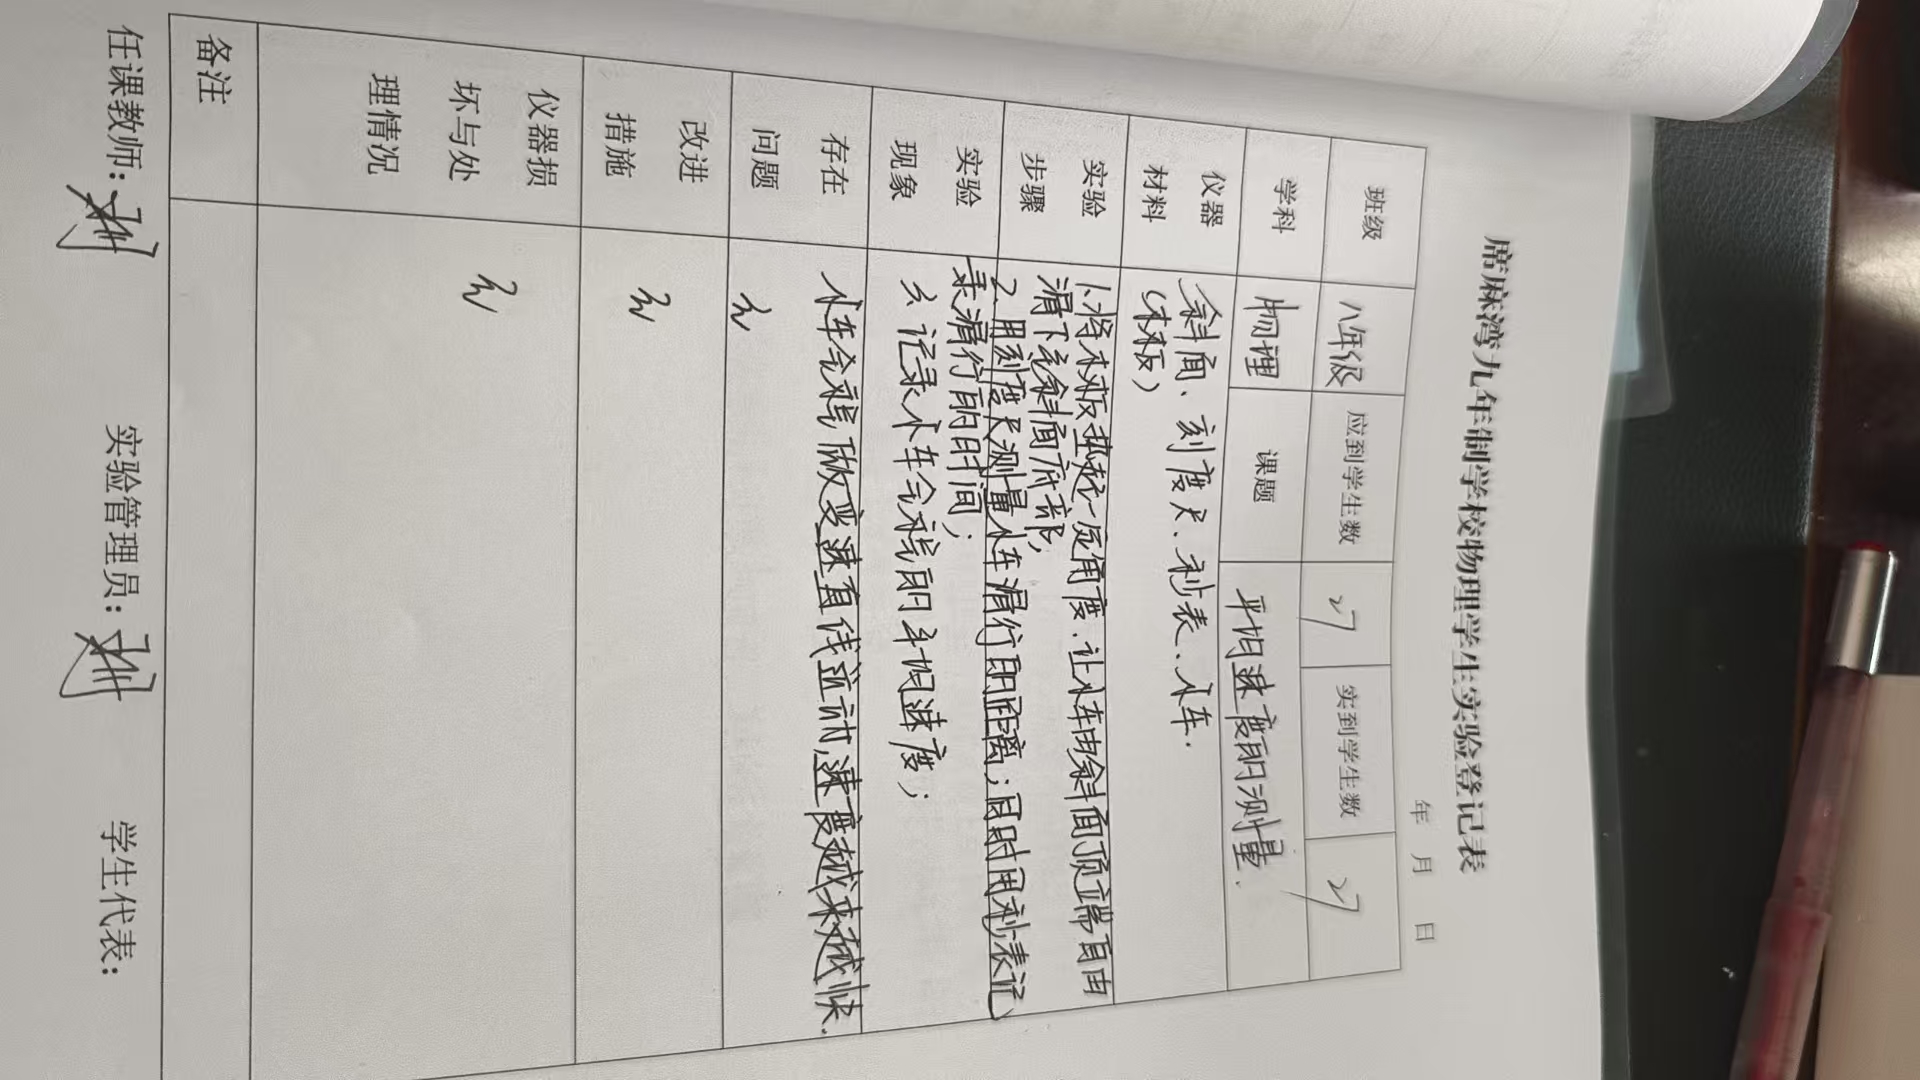 席麻湾九年制学校物理学生实验登记表
年 月 日
班级 八年级 应到学生数 27 实到学生数 27
学科 物理 课题 平均速度的测量.
仪器材料 斜面、刻度尺、秒表、小车.
(木板)
实验步骤 1.将木板垫起一定角度.让小车由斜面顶端自由
滑下至斜面底部;
2.用刻度尺测量小车滑行的距离;同时用秒表记
录滑行的时间;
实验现象
3.记录小车全程的平均速度;
存在问题 小车全程做变速直线运动,速度越来越快.
无
改进措施 无
仪器损坏与处理情况 无
备注
任课教师: 实验管理员: 学生代表: